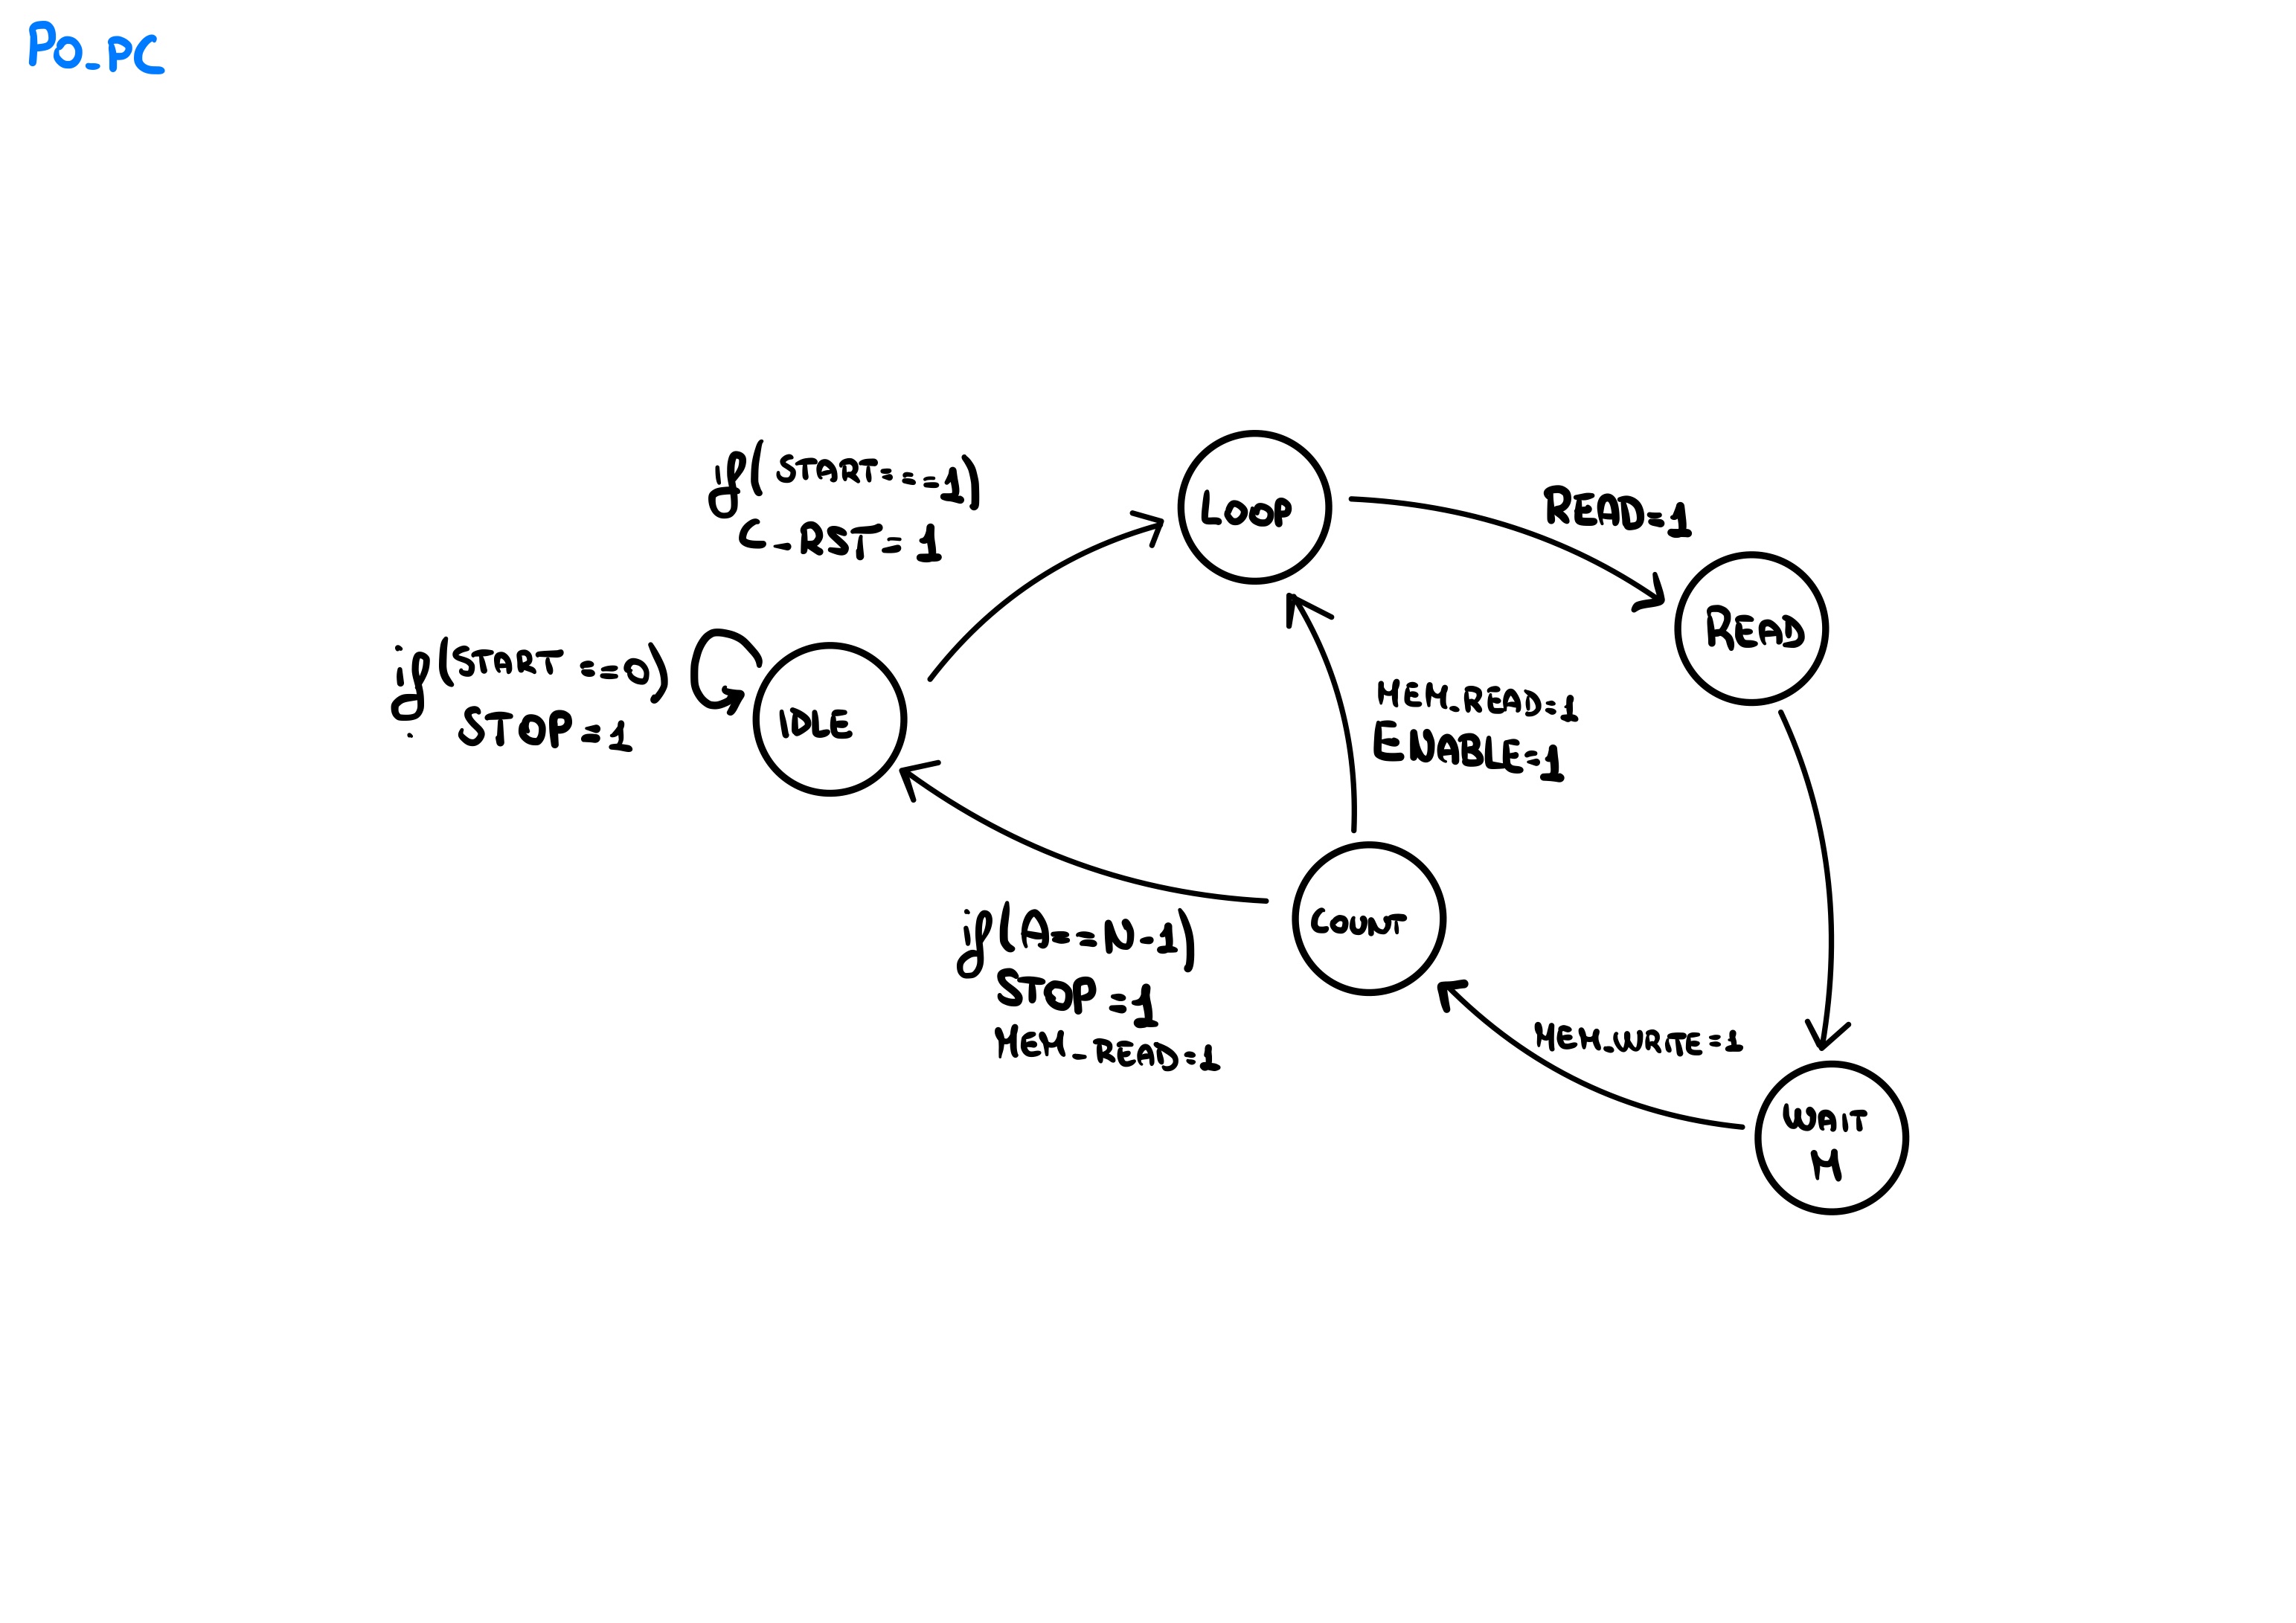 PO_PC
if(START===1)
C_RST=1
LOOP
READ=1
READ
if(START==0)
STOP=1
IDLE
MEM_READ=1
ENABLE=1
COUNT
if(A==N-1)
STOP=1
MEM_READ=1
MEM_WRITE=1
WAIT
M